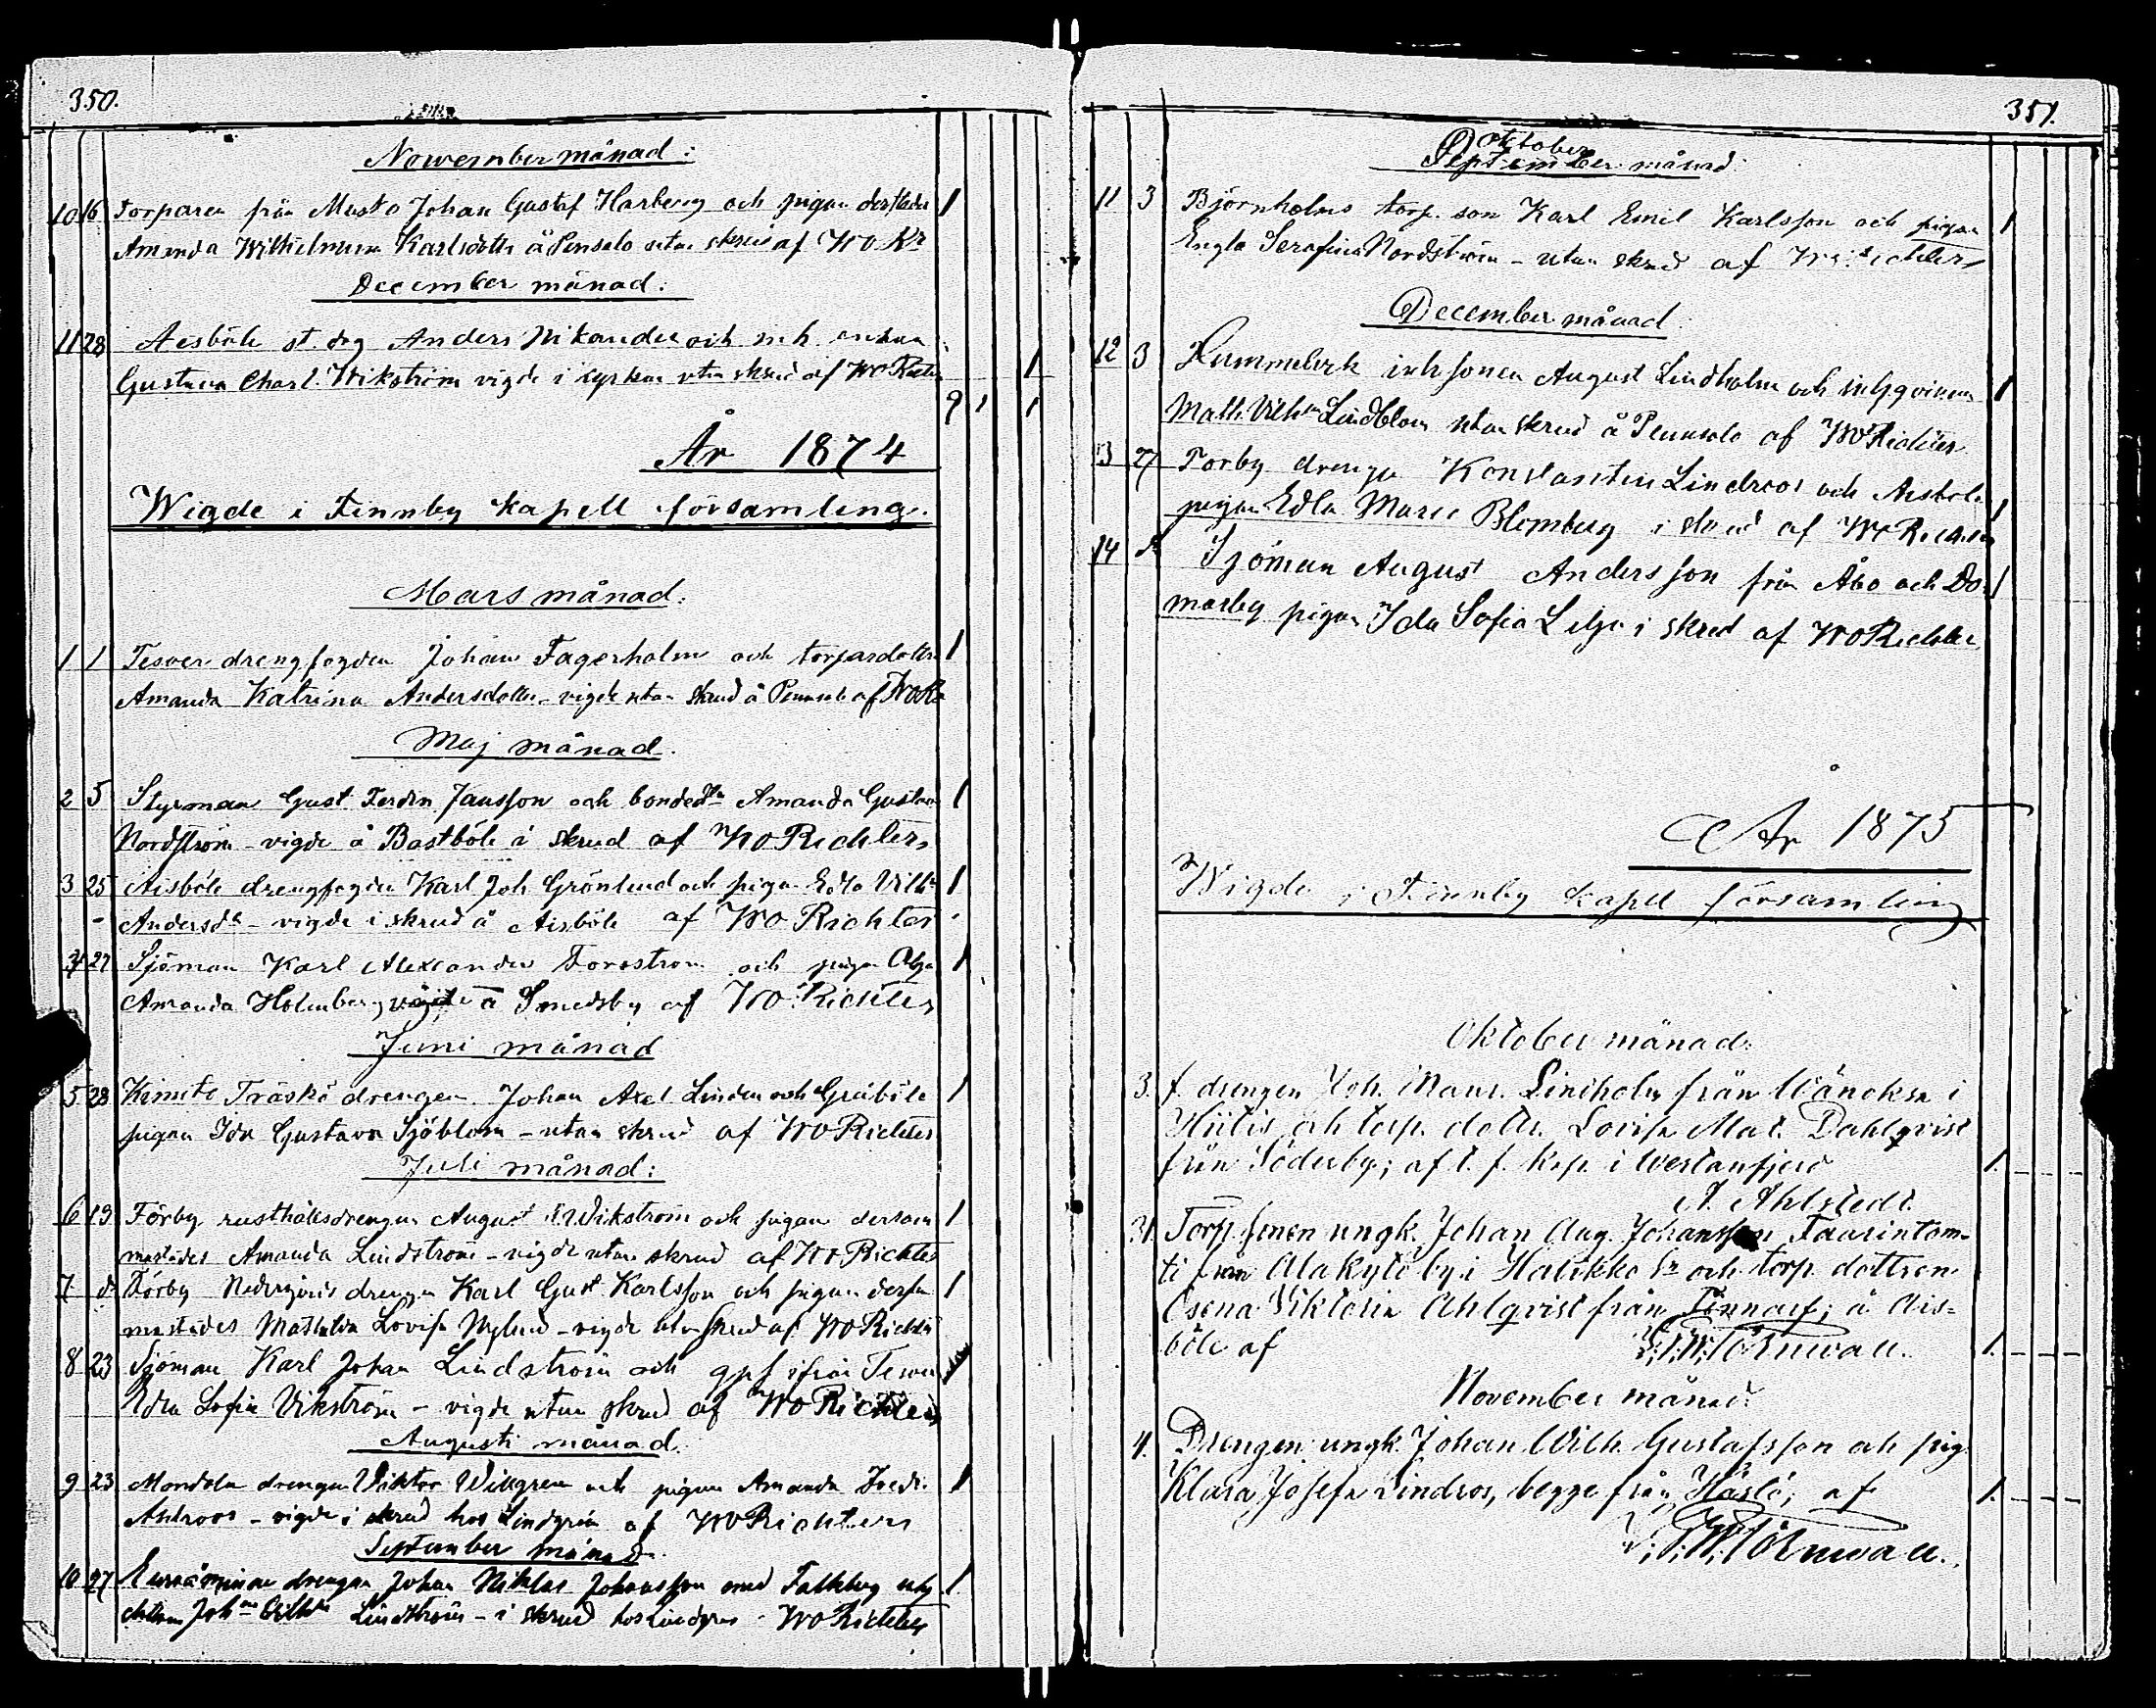 350.
Nowember månad:
10 16 Torparen från Musto Johan Gustaf Harberg och pigan derstädes 1
Amanda Wilhelmina Karlsdotter å Pensalo utan skrud af WO Rr
December månad:
11 28 Aisböle st. dog Anders Nikander och enkan
Gustava Charl. Wikström vigde i kyrkan utan skrud af WO Richter 1
9 1 1
År 1874
Wigde i Finnby kapell församling.
Mars månad:
1 1 Tesver drengfogden Johan Fagerholm och torpardottr 1
Amanda Katrina Andersdotter - vigde utan skrud å Pensalo af WOR
Maj månad.
2 5 Styrman Gust. Ferdin Jansson och bondedtr Amanda Gustava 1
Nordström - vigde å Bastböle i skrud af WO Richter
3 25 Aisböle drengfogden Karl Joh Grönlund och pigan Edla Vilhа 1
Andersdr - vigde i skrud å Aisböle af WO Richter
4 27 Sjöman Karl Alexander Forsström och pigan Olga 1
Amanda Holmberg vigde å Smedsby af WO Richter
Juni månad
5 28 Kimito Träskö drengen Johan Axel Linden och Gräböle 1
pigan Ida Gustava Sjöblom - utan skrud af WO Richter
Juli månad:
6 19 Förby rusthållsdrengen August Wikström och pigan dersam 1
mastädes Amanda Lindström - vigde utan skrud af WO Richter
7 d Förby drengen Karl Gust Karlsson och pigan dersam 1
mastädes Mathilda Lovisa Nylund - vigde utan skrud af WO Richter
8 23 Sjöman Karl Johan Lindström och ifrån Tesver 1
Edla Sofia Vikström - vigde utan skrud af WO Richter
Augusti månad.
9 23 Mondola drengen Viktor Willgren och pigan Amanda Fredr. 1
Androos - vigde i skrud hos Lindgren af WO Richter
September månad.
10 27 drengen Johan Niklas Johansson med Falkberg 1
Johna Vilhna Lindström - i skrud hos Lindgren WO Richter
351.
Oktober
September månad
11 3 Björnholms torp. son Karl Emil Karlsson och pigan 1
Engla Serafina Nordström - utan skrud af WO Richter
December månad.
12 3 August Lindholm och 1
Math. Vilhna Lindblom utan skrud å Pensalo af WO Richter
13 27 Förby drengen Konstantin Lindroos och Aisböle 1
pigan Edla Maria Blomberg i skrud af WO Richter
14 d Sjöman August Andersson från Åbo och Do- 1
marby pigan Ida Sofia Lilja i skrud af WO Richter
År 1875
Wigde i Finnby kapell församling
Oktober månad:
3. f. drengen Joh. Maur. Lindholm från Wänoksa i
Hiitis och torp. dottr. Lovisa Mat. Dahlqvist
från Söderby; af t. f. kap. i Westanfjerd 1.
A. Ahlstedt.
31. Torp. sonen ungk. Johan Aug. Johansson Taarintom-
ti från Alakylö by i Halikko Sn och torp. dottren
Viktoria Ahlqvist från å Ais-
böle af Törnwall. 1.
November månad:
4. Drengen ungk. Johan Wilh. Gustafsson och pig.
Klara Josefa Lindros, begge från Håslö; af 1.
Törnwall.